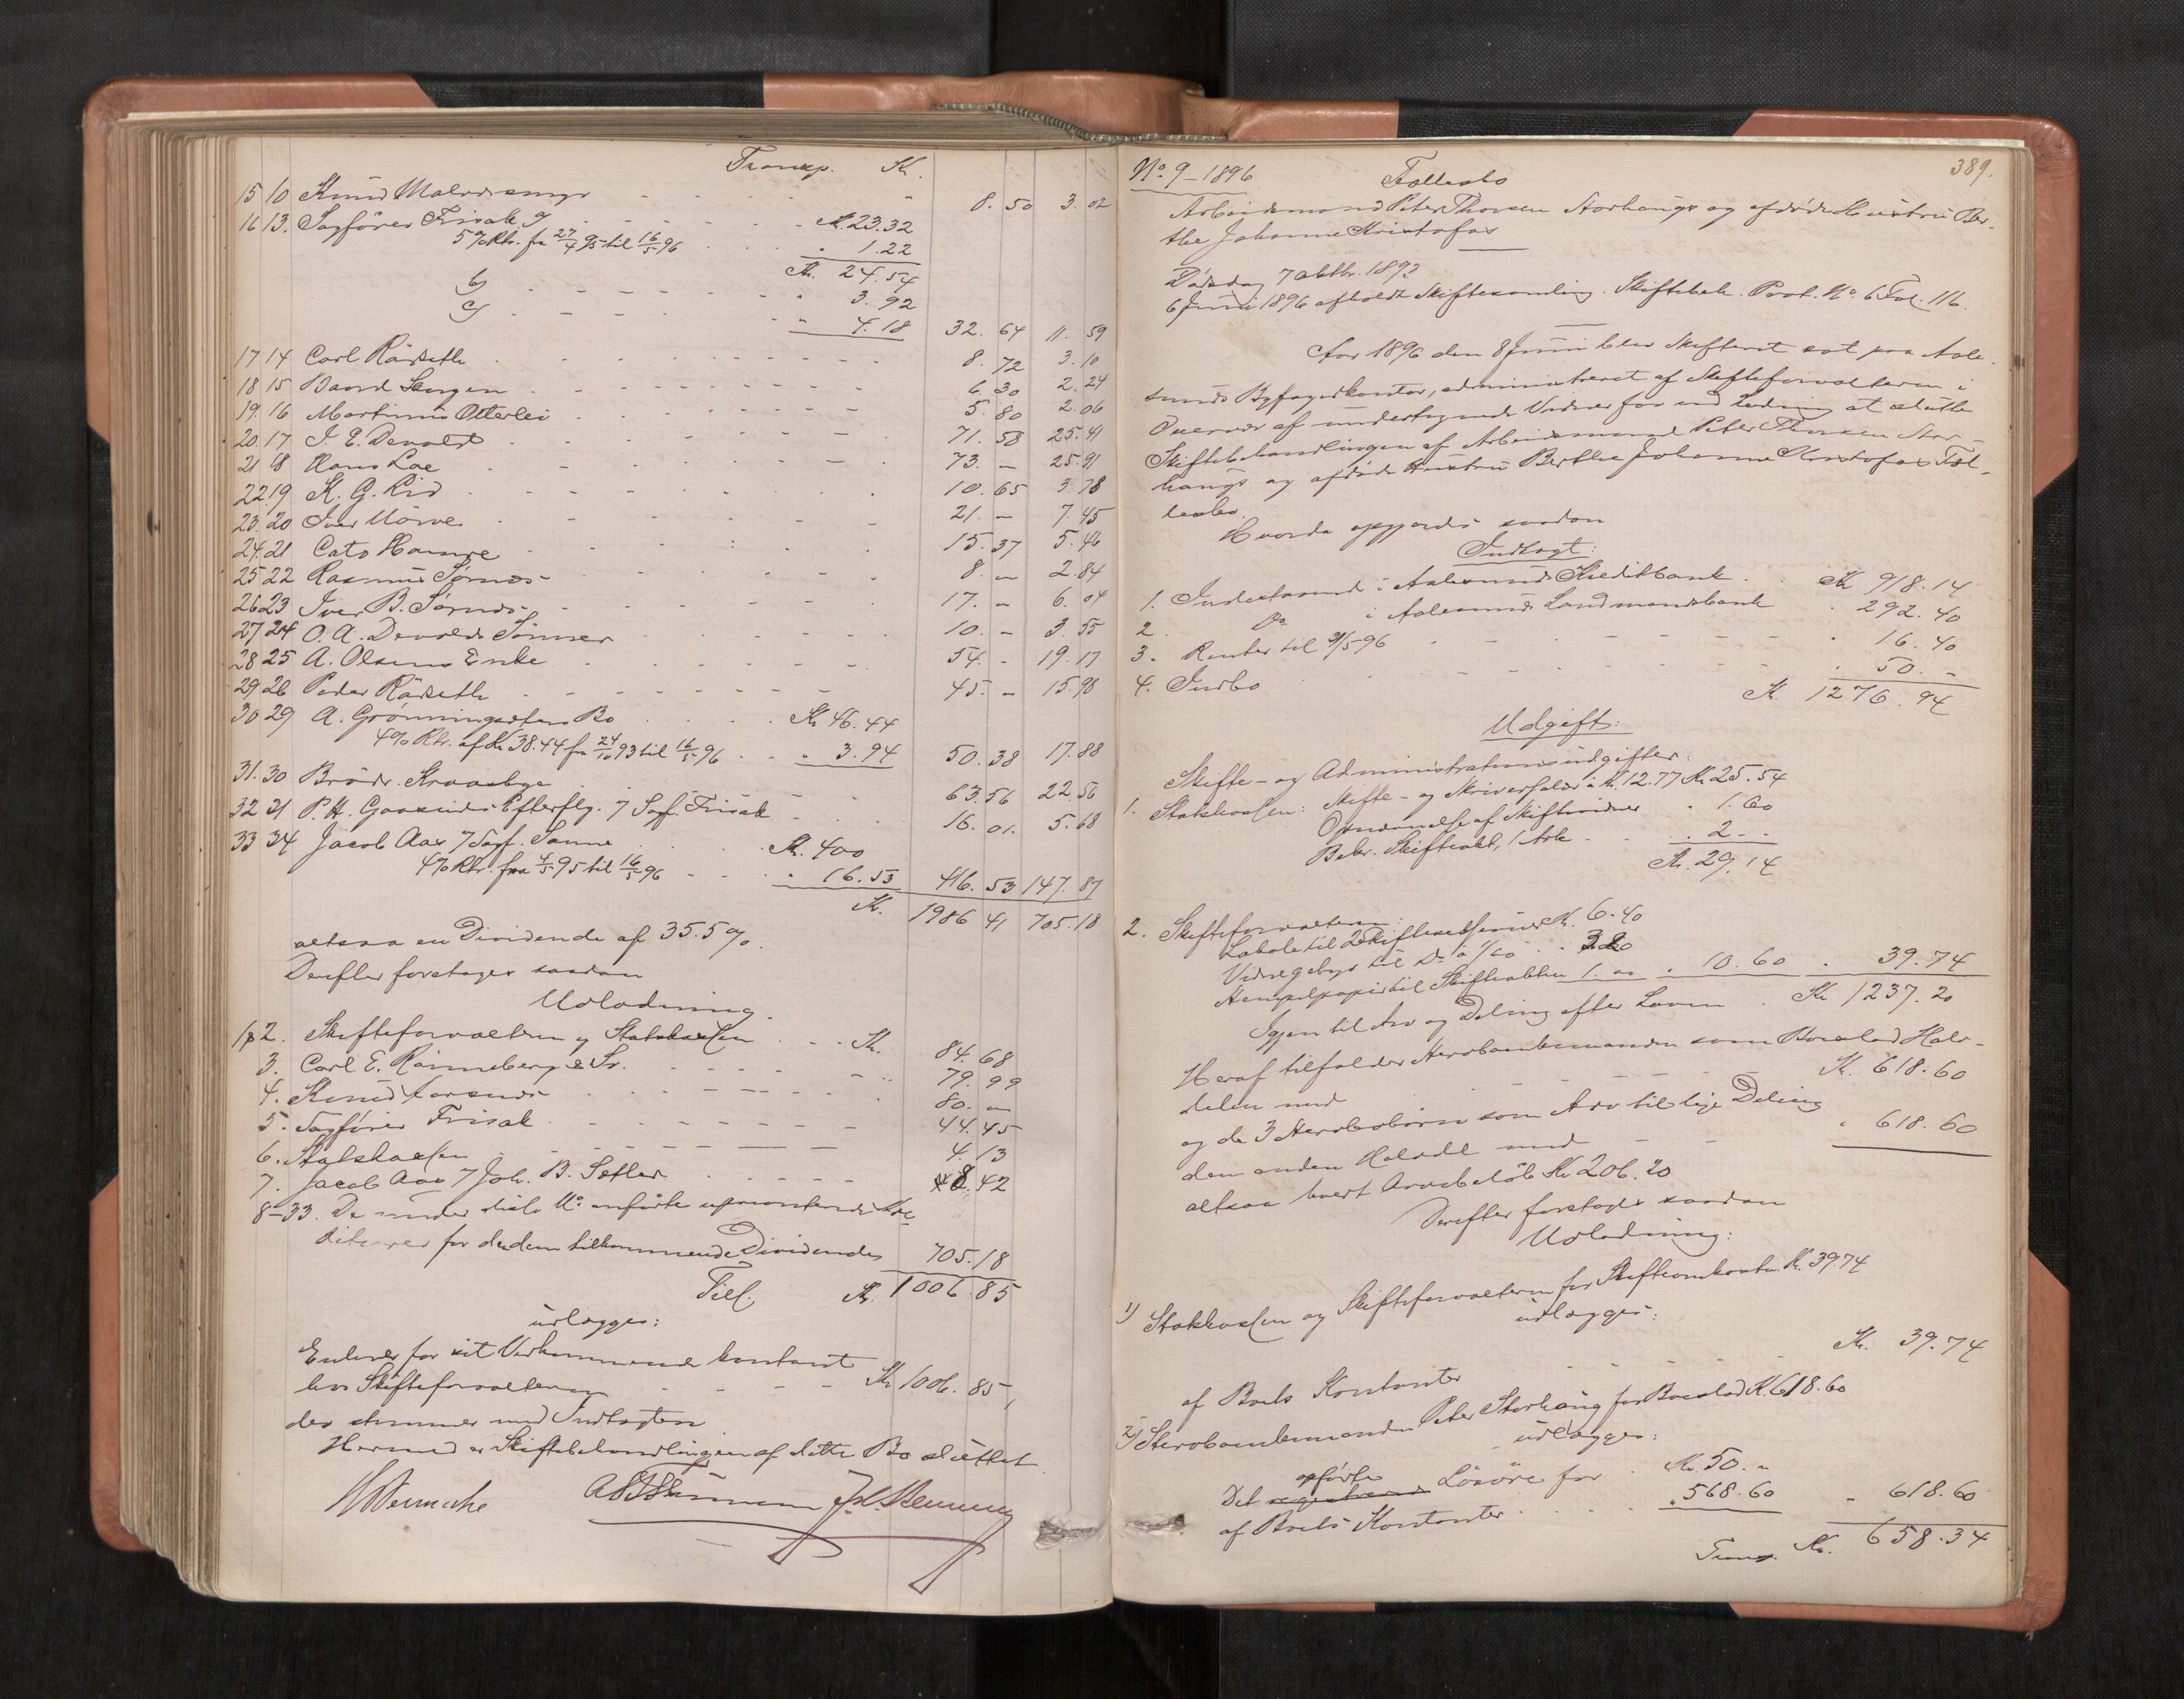 Transp. Kr.
15 10 Knud Malvesmyr " 8. 50 3. 02
16 13. Sagfører Frisak Kr. 23.32
5 % Rtr. fra 27/4 95 til 16/5 96 " 1.22
Kr. 24.54
b) " 3. 92
c) " 4.18 32. 64 11. 59
17 14 Carl Rønseth 8. 72 3. 10
18 15 Baard Slingen 6. 30 2. 24
19. 16 Martinus Otterlei 5. 80 2. 06
20. 17 I. E. Devold 71. 58 25. 41
21 18 Hans Loe 73. " 25. 91
22 19 K. G. Rid 10. 65 3. 78
23. 20 Iver Mörve 21. " 7. 45
24. 21 Cato Hamre 15. 37 5. 46
25 22 Rasmus Tørnes 8. " 2. 84
26 23 Iver B. Tørnes 17. " 6. 04
27 24 O. A. Devolds Sönner 10. " 3. 55
28 25 A. Olsens Enke 54. " 19. 17
29 26 Peder Rödseth 45. " 15. 98
30 29 A. Grønningsæters Bo Kr. 46.44
4 % Rtr. af Kr. 38.44 fra 24/10 93 til 16/5 96 " 3.94 50. 38 17. 88
31. 30 Brödr. Kraasbye 63. 56 22. 56
32 31 P. H. Gaasunds Efterflg. 7 Sagf. Frisak 16. 01. 5. 68
33 34 Jacob Aas 7 Sagf. Sanne Kr. 400
4 % Rtr. fra 4/5 95 til 16/5 96 " 16. 53 416. 53 147. 87
Kr. 1986 41 705. 18
altsaa en Dividende af 35.5 %.
Derefter foretages saadan
Udlodning.
1 & 2. Skifteforvalteren og Statskassen Kr. 84. 68
3. Carl E. Rönneberg & Sr. 79. 99
4. Knud Aarsund 80. "
5. Sagfører Frisak 44. 45
6. Statskassen 4. 13
7. Jacob Aas 7 Joh. B. Sætter 8. 42
8-33. De under disse No anførte uprioriterede Kre-
ditorer for den dem tilkommende Dividende 705. 18
Till. Kr. 1006. 85
udlægges:
Enhver for sit Vedkommende kontant
hos Skifteforvalteren Kr. 1006. 85,
der stemmer med Indtægten
Hermed er Skiftebehandlingen af dette Bo sluttet
No 9 - 1896 389.
Fællesbo
Arbeidsmand Peter Thorsen Storhaugs og afdøde Hustru Ber-
the Johanne Kristofas
Dødsdag 7 Oktbr. 1893
6 Juni 1896 afholdt Skiftesamling. Skiftebeh. Prot. No 6 Fol. 116.
Aar 1896 den 8 Juni blev Skifteret sat paa Aale-
sunds Byfogedkontor, administreret af Skifteforvalteren i
Overvær af undertegnede Vidner for ved Lodning at slutte
Skiftebehandlingen af Arbeidsmand Peter Thorsen Stor-
haugs og afdøde Hustru Berthe Johanne Kristofas Fæl-
lesbo.
Hvorda opgjordes saadan
Indtægt:
1. Indestaaende i Aalesunds Kreditbank Kr. 918. 14
2. Do i Aalesunds Landmandsbank " 292. 40
3. Renter til 31/5 96 " 16. 40
4. Indbo " 50. "
Kr. 1276. 94
Udgift:
Skifte- og Administrationsudgifter:
1. Statskassen: Skifte- og Skriversalær à Kr. 12.77 Kr. 25. 54
Opnævnelse af Skiftevidner " 1. 60
Bekr. Skifteakt, 1 Ark " 2. "
Kr. 29. 14
2. Skifteforvalteren:
Lokale til 2 Skiftesessioner Kr. 6. 40
Vidnegebyr til Do à 1/60 " 3. 20
Stempelpapir til Skifteakten 1. 00 " 10. 60 " 39. 74
Igjen til Arv og Deling efter Loven Kr. 1237. 20
Heraf tilfalder Stervboenkemanden som Boeslod Halv-
delen med Kr. 618. 60
og de 3 Stervbobörn som Arv til lige Deling
den anden Halvdel med " 618. 60
altsaa hvert Arvebeløb Kr. 206. 20
Derefter foretages saadan
Udlodning:
1) Statskassen og Skifteforvalteren for Skifteomkostn. Kr. 39.74
udlægges:
af Boets Kontanter Kr. 39. 74
2) Stervboenkemanden Peter Storhaug for Boeslod Kr. 618.60
udlægges:
opførte
Det Løsöre for Kr. 50. "
af Boets Kontanter " 568. 60 " 618. 60
Transp. Kr. 658. 34